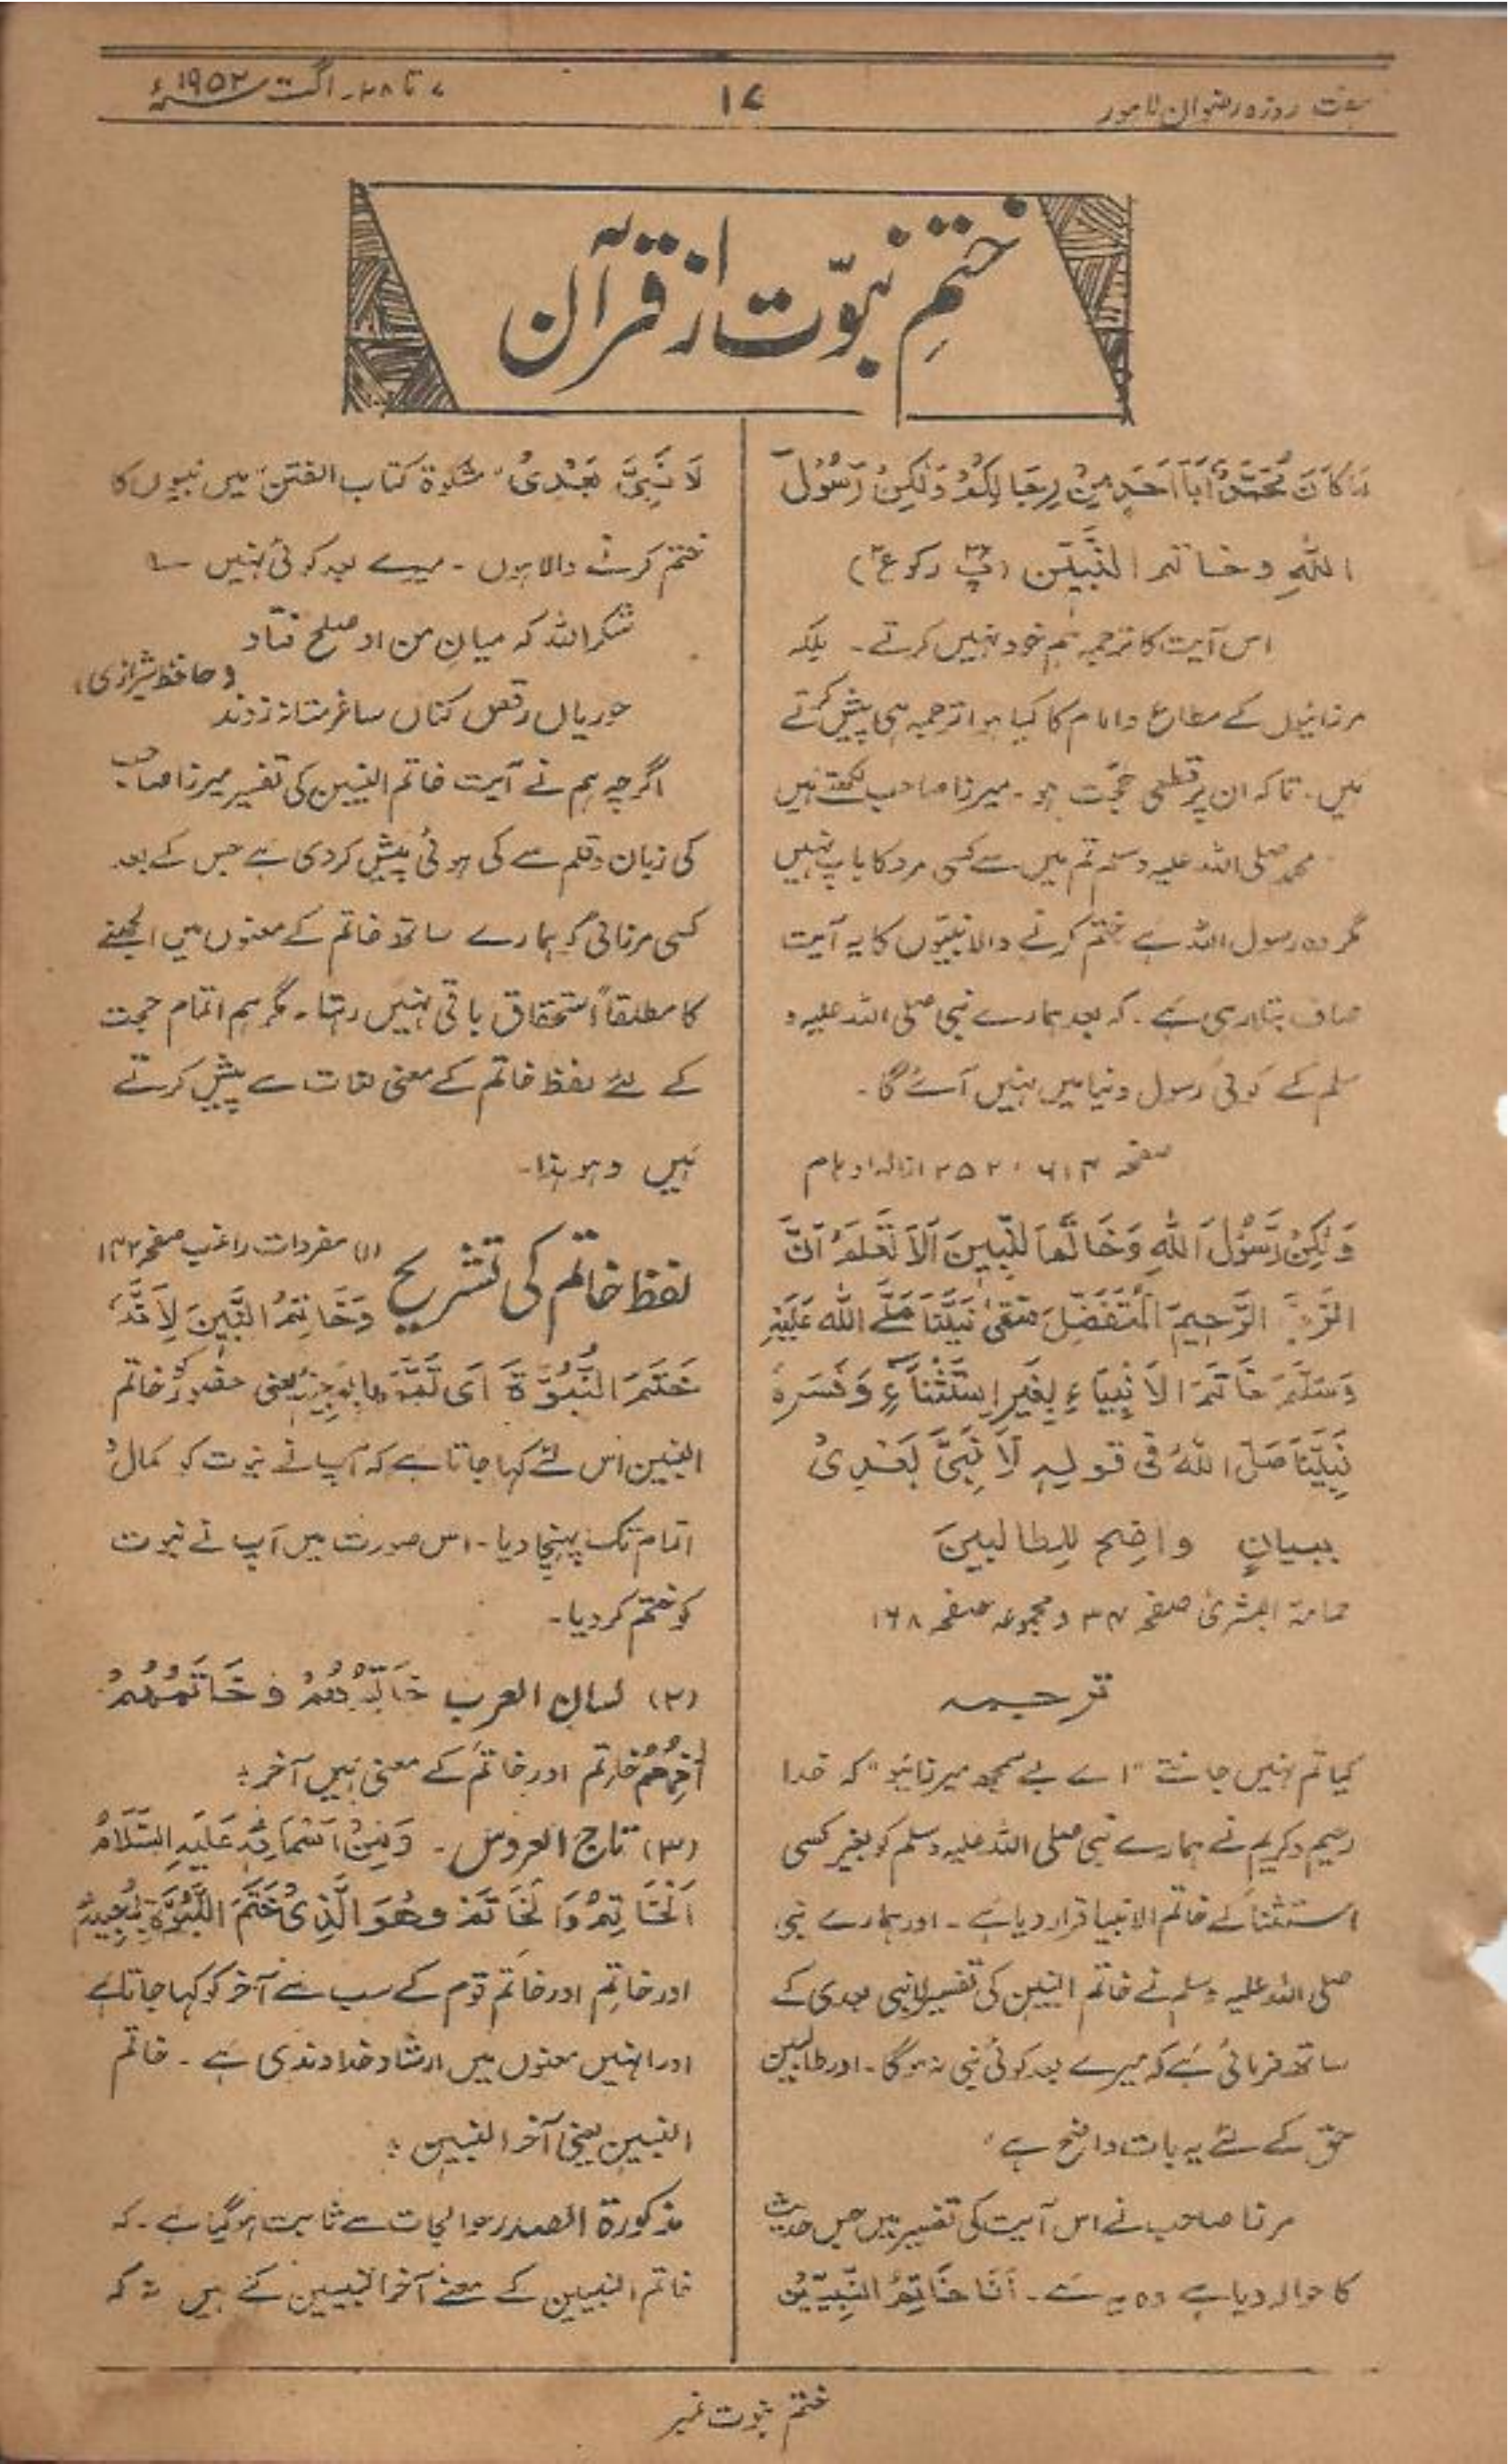 ہفت روزہ رضوان لاہور
۱۷
۷ تا ۲۸۔ اگست ۱۹۵۲ء
ختمِ نبوّت از قرآن
مَا كَانَ مُحَمَّدٌ اَبَآ اَحَدٍ مِنْ رِجَالِكُمْ وَلٰكِنْ رَسُوْلَ
اللّٰهِ وخاتم النَّبِیّٖن (پ۲۲ رکوع ۲)
اس آیت کا ترجمہ ہم خود نہیں کرتے۔ بلکہ
مرزائیوں کے مطاع و امام کا کیا ہوا ترجمہ ہی پیش کرتے
ہیں۔ تاکہ ان پر قطعی حجّت ہو۔ میرزا صاحب لکھتے ہیں
محمد صلی اللہ علیہ وسلم تم میں سے کسی مرد کا باپ نہیں
مگر وہ رسول اللہ ہے ختم کرنے والا نبیّوں کا یہ آیت
صاف بتا رہی ہے۔ کہ بعد ہمارے نبی صلی اللہ علیہ و
سلم کے کوئی رسول دنیا میں نہیں آئے گا۔
صفحہ ۶۱۴، ۲۵۲ ازالہ اوہام
وَلٰكِنْ رَّسُوْلَ اللّٰهِ وَخَاتَمَ النَّبِیٖنَ اَلَا تَعْلَمُ اَنَّ
الرَّبَّ الرَّحِیْمَ الْمُتَفَضِّلَ سَمّٰی نَبِیَّنَا صَلَّے اللّٰهُ عَلَیْهِ
وَسَلَّمَ خَاتَمَ الْاَنْبِیَاءِ بِغَیْرِ اِسْتِثْنَآءٍ وَفَسَرَہٗ
نَبِیُّنَا صَلَّی اللّٰهُ فِی قولِہٖ لَا نَبِیَّ بَعْدِیْ
ببیانٍ واضِح لِلطالبینَ
حمامۃ البشریٰ صفحہ ۳۴ و مجموعہ صفحہ ۱۶۸
ترجمہ
کیا تم نہیں جانتے "اے بے سمجھ میرزائیو" کہ خدا
رحیم و کریم نے ہمارے نبی صلی اللہ علیہ وسلم کو بغیر کسی
استثنا کے خاتم الانبیا قرار دیا ہے۔ اور ہمارے نبی
صلی اللہ علیہ وسلم نے خاتم النبیٖن کی تفسیر لانبی بعدی کے
ساتھ فرمائی ہے کہ میرے بعد کوئی نبی نہ ہوگا۔ اور طالبین
حق کے لئے یہ بات واضح ہے۔
مرزا صاحب نے اس آیت کی تفسیر میں جس حدیث
کا حوالہ دیا ہے وہ یہ ہے۔ اَنَا خَاتِمُ النَّبِیِّیْن
لَا نَبِیَّ بَعْدِیْ" مشکوٰۃ کتاب الفتن" میں نبیوں کا
ختم کرنے والا ہوں۔ میرے بعد کوئی نہیں
شکر اللہ کہ میانِ من و او صلح فتاد
(حافظ شیرازی)
حوریاں رقص کناں ساغر مستانہ زدند
اگرچہ ہم نے آیت خاتم النبیین کی تفسیر میرزا صاحب
کی زبان و قلم سے کی ہوئی پیش کردی ہے جس کے بعد
کسی مرزائی کو ہمارے ساتھ خاتم کے معنوں میں الجھنے
کا مطلقاً استحقاق باقی نہیں رہتا۔ مگر ہم اتمام حجت
کے لئے لفظ خاتم کے معنی لغات سے پیش کرتے
ہیں وہو ہذا۔
لفظ خاتم کی تشریح
(۱) مفردات راغب صفحہ ۱۴۲
وَخَاتِمُ النَّبِیٖنَ لِاَنَّهٗ
خَتَمَ النُّبُوَّةَ اَی تَمَّمَهَا بِمَجِیْئِہٖ یعنی حضور کو خاتم
النبیین اس لئے کہا جاتا ہے کہ آپ نے نبوت کو کمال و
اتمام تک پہنچا دیا۔ اس صورت میں آپ نے نبوت
کو ختم کر دیا۔
(۲) لسان العرب خَاتِمُهُمْ وخَاتَمُهُمْ
اٰخِرُهُمْ خاتِم اور خاتَم کے معنی ہیں آخر؛
(۳) تاج العروس۔ وَمِنْ اَسْمَائِہٖ عَلَیْهِ السَّلَامُ
اَلْخَاتِمُ وَالْخَاتَمُ وهُوَ الَّذِیْ خَتَمَ النُّبُوَّةَ بِمَجِیْئِہٖ
اور خاتِم اور خاتَم قوم کے سب سے آخر کو کہا جاتا ہے
اور انہیں معنوں میں ارشاد خداوندی ہے۔ خاتم
النبیین یعنی آخر النبیین؛
مذکورۃ الصدر حوالجات سے ثابت ہوگیا ہے۔ کہ
خاتم النبیین کے معنے آخر النبیین کے ہیں نہ کہ
ختم نبوت نمبر